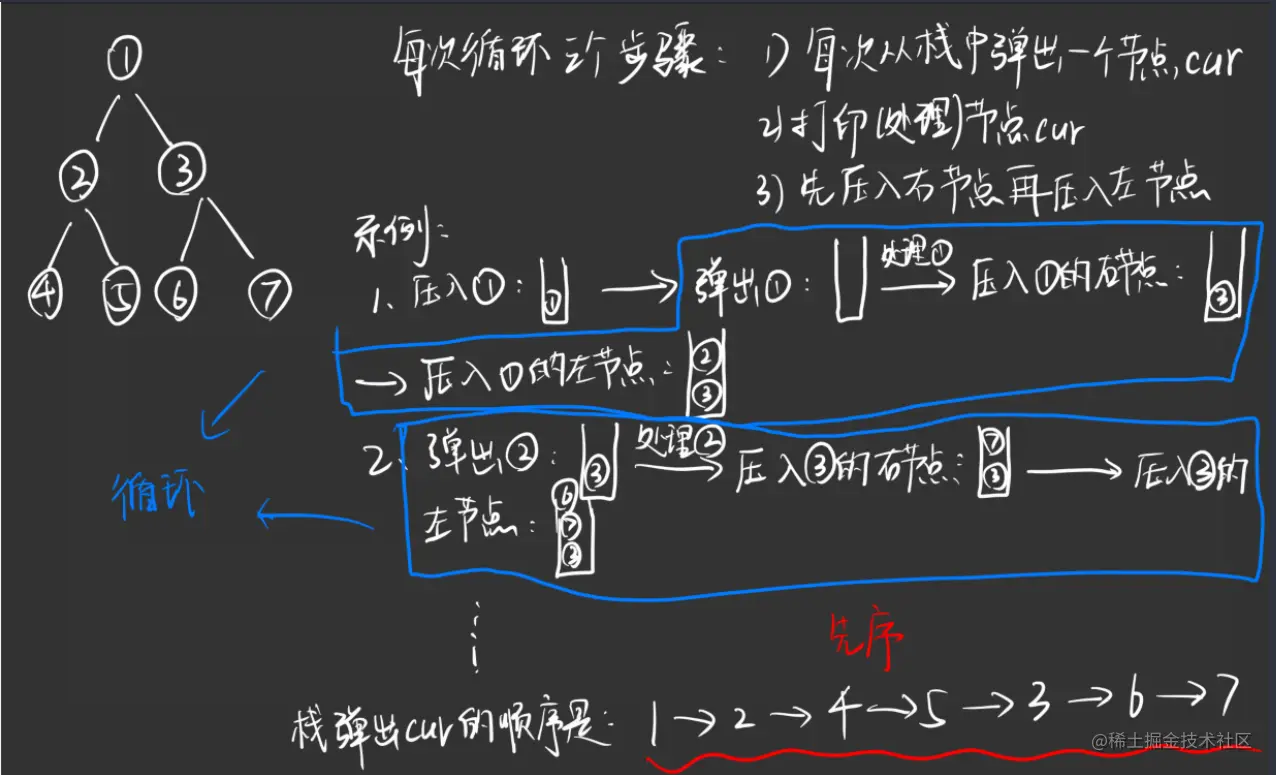 每次循环三个步骤：1) 每次从栈中弹出一个节点,cur
2) 打印(处理)节点cur
3) 先压入右节点再压入左节点
①
② ③
④ ⑤ ⑥ ⑦
示例：
1、压入①： ① → 弹出①： 处理① → 压入①的右节点： ③
→ 压入①的左节点： ② ③
2、弹出②： ③ 处理② → 压入③的右节点： ⑦ ③ → 压入③的
左节点： ⑥ ⑦ ③
循环
先序
栈弹出cur的顺序是： 1→2→4→5→3→6→7
@稀土掘金技术社区